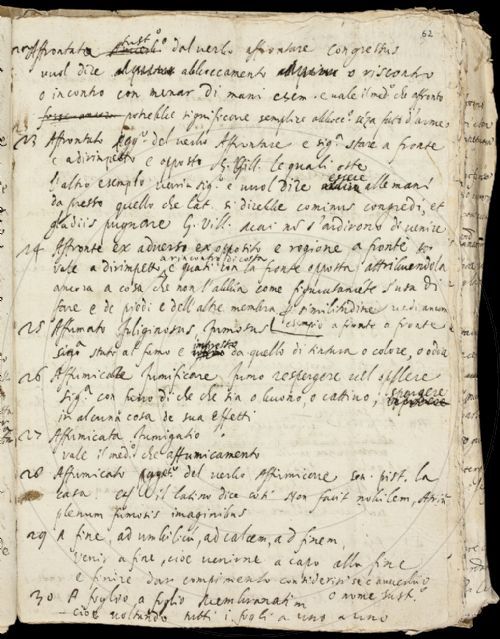 62
Affrontata sust.o dal verbo affrontare congressus
vuol dice abboccamento o riscontro
o incontro con menar di mani e vale il med.o che affronto
potrebbe significare semplice abbocc.o senza fatto d'arme
23 Affrontato del verbo Affrontare e sig.a stare a fronte
e a dirimpetto e opposto G. Vill. le quali oste
l'altro esempio sig. e vuol dire essere alle mani
da presso quello che lat. si direbbe cominus congredi, et
gladiis pugnare G. Vill. s'ardirono di venire
24 Affronte ex adverso ex opposito e regione a fronte
vale a dirimpetto a rincontro di costa e quasi con la fronte opposta attribuendola
ancora a cosa che non l'abbia come figuratamente s'usa di
e de piedi e dell'altre membra p similitudine
25 Affumato fuliginosus, fumosus l'esempio a fronte a fronte
sig.a stato al fumo e infetto da quello di natura o colore, o odore
26 Affumicare fumificare fumo respergere vel
sig.a con fumo di che che sia o buono, o cattivo, spergere
in alcuna cosa de sua effetti
27 Affumicata fumigatio
vale il med.o che affumicamento
28 Affumicato del verbo Affumicare Sen. pist. la
casa il latino dice così Non facit nobilem, Atriũ
plenum fumosis imaginibus
29 A fine, ad umbilicũ, ad calcem, ad finem,
Venir a fine, cioè venirne a capo alla fine
e finire dar compimento considerisi se è avverbio
o nome sust.o
30 A foglio a foglio membranatim
cioè voltando tutti i fogli a uno a uno